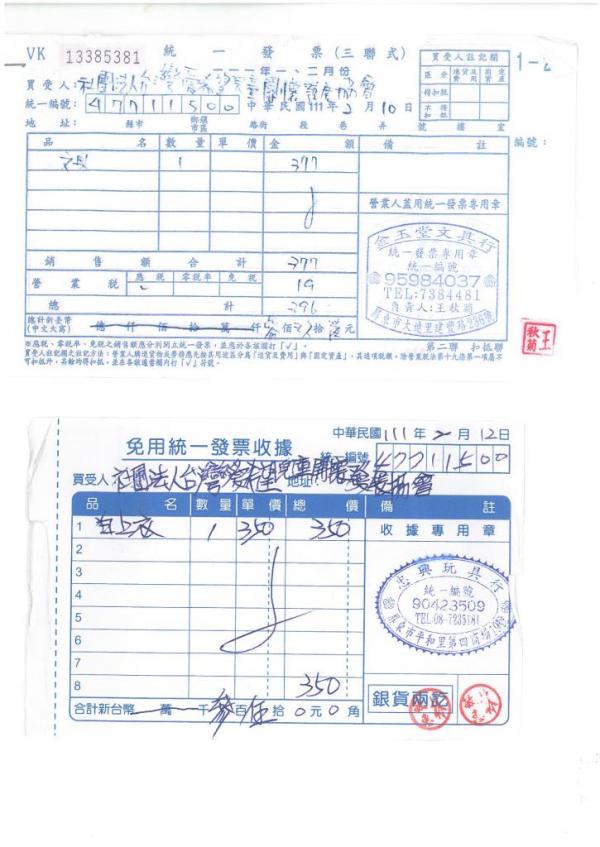 VK 13385381 統一發票(三聯式)
一一一年一、二月份
買受人: 社團法人台灣愛希望兒童關懷發展協會
統一編號: 47711500 中華民國111年2月10日
地址: 縣市 鄉鎮市區 路街 段 巷 弄 號 樓 室
買受人註記欄
區分 進貨及費用 固定資產
得扣抵
不得扣抵
編號:
品名 數量 單價 金額 備註
1 377
營業人蓋用統一發票專用章
銷售額合計 377
營業稅 應稅 零稅率 免稅 19
總計 396
總計新臺幣(中文大寫) 億 仟 佰 拾 萬 仟 佰 拾 元
金玉堂文具行
統一發票專用章
統一編號
95984037
TEL:7384481
負責人:王秋菊
屏東市大連里建豐路236號
王秋菊
※應稅、零稅率、免稅之銷售額應分別開立統一發票,並應於各該欄打「✓」。
第二聯 扣抵聯
買受人註記欄之註記方法:營業人購進貨物或勞務應先按其用途區分為「進貨及費用」與「固定資產」,其進項稅額,除營業稅法第十九條第一項屬不
可扣抵外,其餘均得扣抵,並在各該適當欄內打「✓」符號。
中華民國111年2月12日
免用統一發票收據
統一編號 47711500
買受人 社團法人台灣愛希望兒童關懷發展協會 地址:
品名 數量 單價 總價 備註
1 白上衣 1 350 350
收據專用章
2
3
4
5
6
7
8 350
忠興玩具行
統一編號
90423509
TEL:08-7235181
屏東市平和里第四商場
合計新台幣 萬 千 參百伍拾0元0角
銀貨兩訖